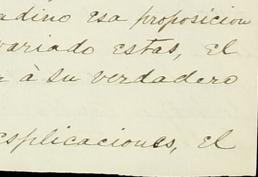 adino esa proposicion
variado estas, el
à su verdadero
esplicaciones, el